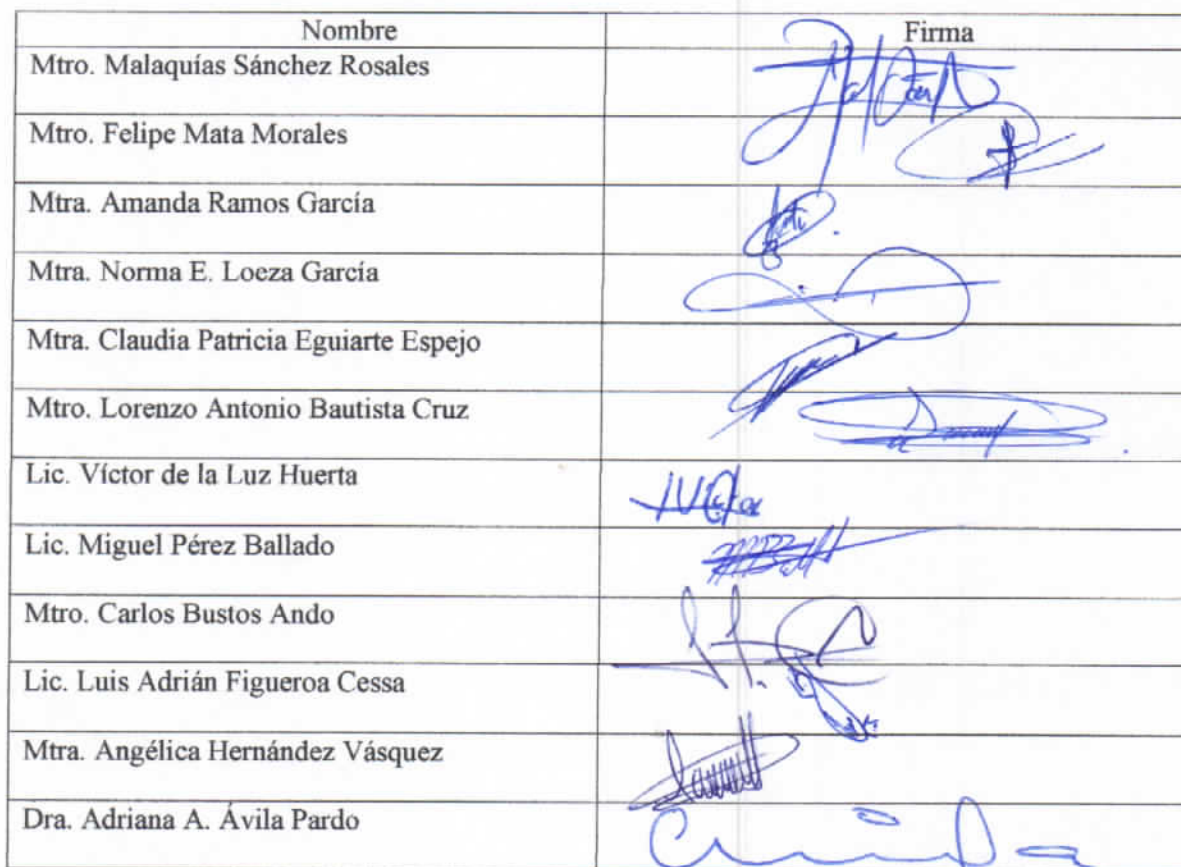 Nombre Firma
Mtro. Malaquías Sánchez Rosales
Mtro. Felipe Mata Morales
Mtra. Amanda Ramos García
Mtra. Norma E. Loeza García
Mtra. Claudia Patricia Eguiarte Espejo
Mtro. Lorenzo Antonio Bautista Cruz
Lic. Víctor de la Luz Huerta
Lic. Miguel Pérez Ballado
Mtro. Carlos Bustos Ando
Lic. Luis Adrián Figueroa Cessa
Mtra. Angélica Hernández Vásquez
Dra. Adriana A. Ávila Pardo